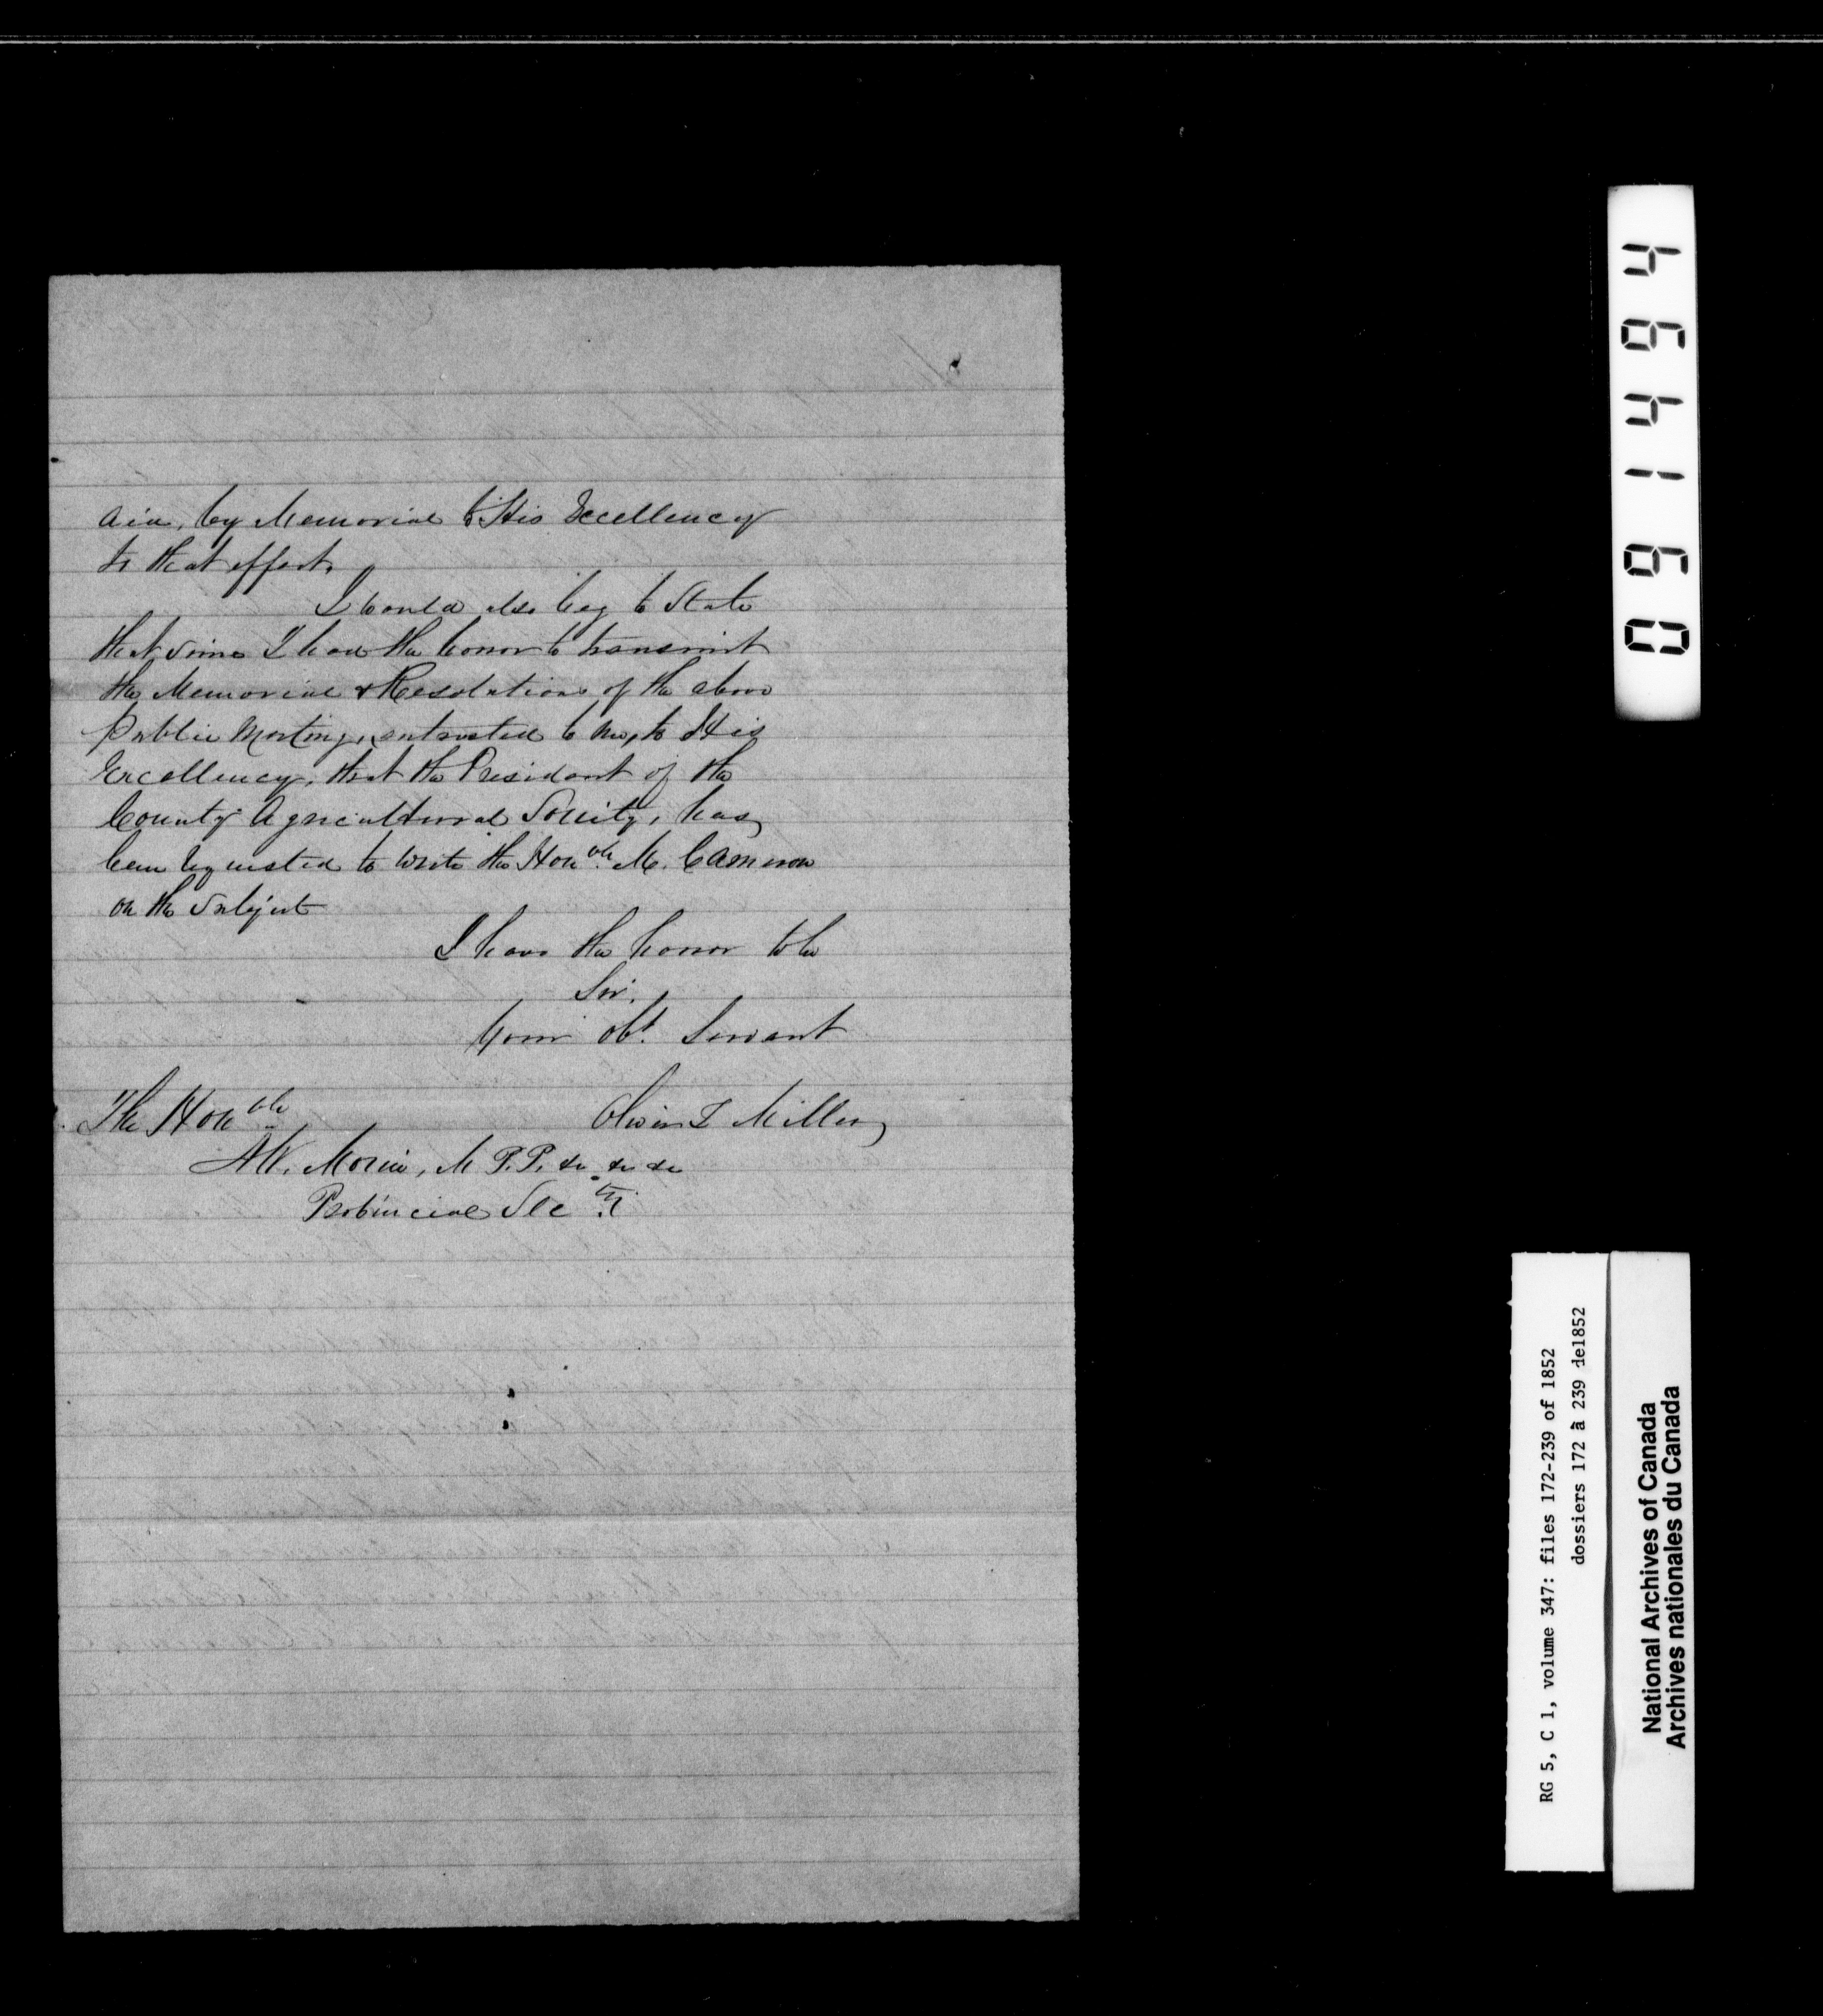 aid, by Memorial to His Excellency
to that effect.
I would also beg to State
that since I had the honor to transmit
the Memorial & Resolutions of the above
Public Meeting, entrusted to me, to His
Excellency, that the President of the
County Agricultural Society, has
been requested to write the Honble. M. Cameron
on the Subject
I have the honor to be
Sir.
Your obt. Servant
The Honble
Oliver T Miller
AN. Morin, M P.P. &c &c &c
Provincial Secty.
094 1494
RG 5, C 1, volume 347: files 172-239 of 1852
dossiers 172 à 239 de1852
National Archives of Canada
Archives nationales du Canada